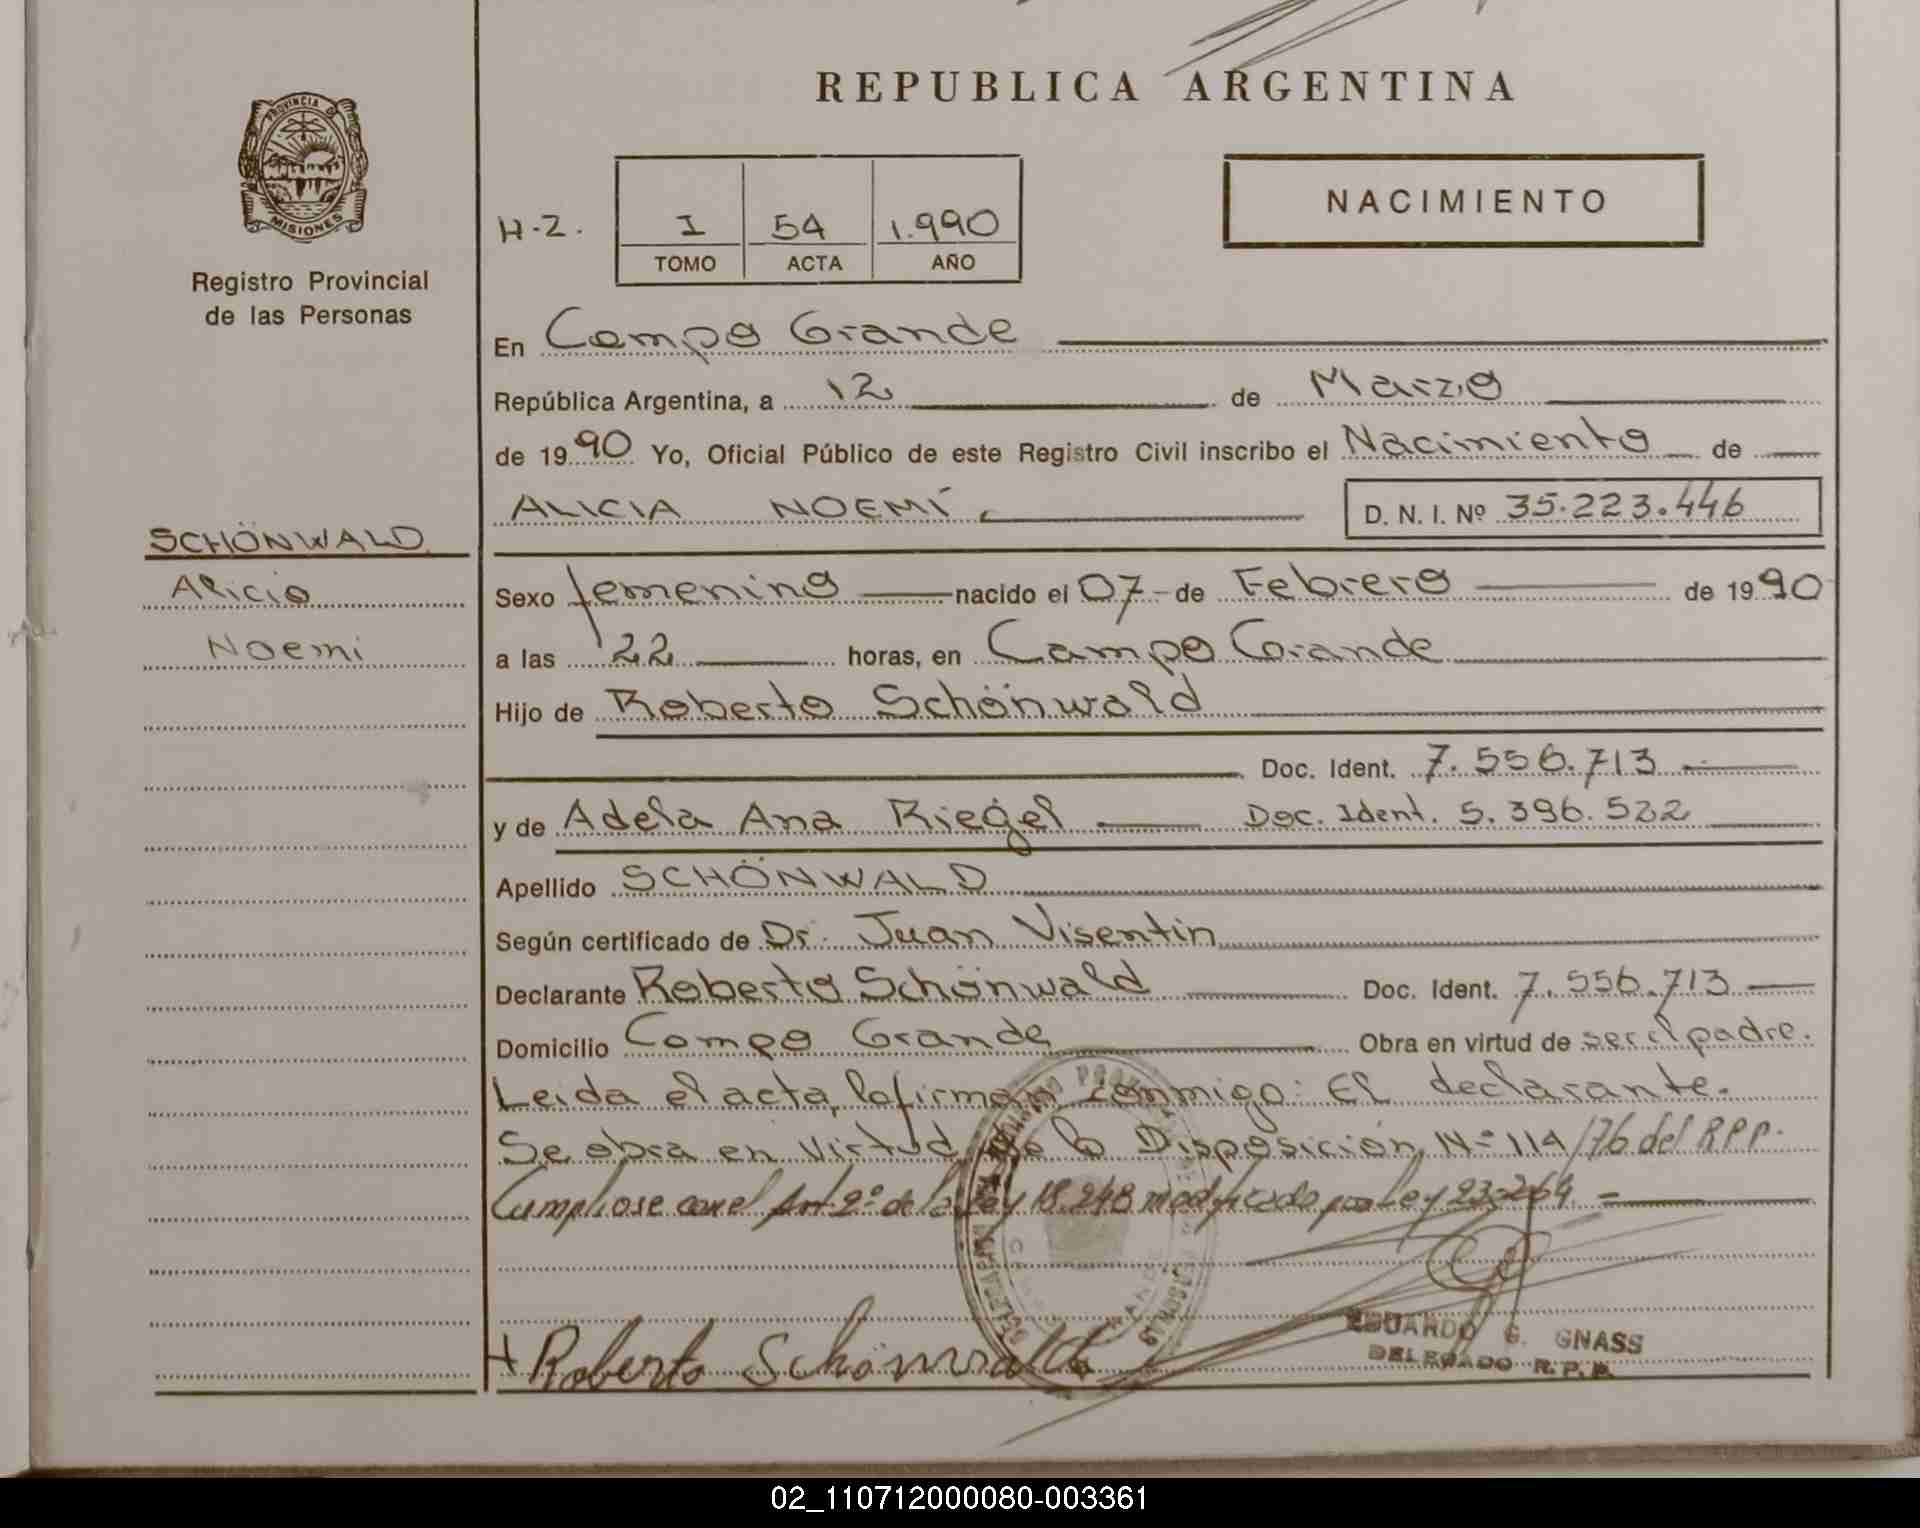 REPUBLICA ARGENTINA
PROVINCIA DE
MISIONES
Registro Provincial
de las Personas
NACIMIENTO
H-2. I 54 1.990
TOMO ACTA AÑO
En Campo Grande
República Argentina, a 12 de Marzo
de 1990 Yo, Oficial Público de este Registro Civil inscribo el Nacimiento de
ALICIA NOEMÍ D. N. I. Nº 35.223.446
SCHÖNWALD
Alicia
Noemi
Sexo femenino nacido el 07 de Febrero de 1990
a las 22 horas, en Campo Grande
Hijo de Roberto Schönwald
Doc. Ident. 7.556.713
y de Adela Ana Riegel Doc. Ident. 5.396.522
Apellido SCHÖNWALD
Según certificado de Dr. Juan Visentin
Declarante Roberto Schönwald Doc. Ident. 7.556.713
Domicilio Campo Grande Obra en virtud de ser el padre.
Leida el acta, la firman conmigo: El declarante.
Se obra en virtud de la Disposición Nº 114/76 del R.P.P.
Cumpliose con el Art. 2º de la Ley 18.248 modificado por Ley 23.264. =
+ Roberto Schönwald
EDUARDO G. GNASS
DELEGADO R.P.P.
02_110712000080-003361